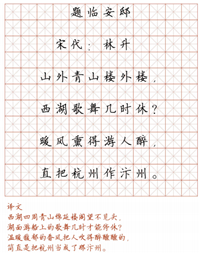 题临安邸
宋代：林升
山外青山楼外楼，
西湖歌舞几时休？
暖风熏得游人醉，
直把杭州作汴州。
译文
西湖四周青山绵延楼阁望不见头，
湖面游船上的歌舞几时才能停休？
温暖馥郁的香风把人吹得醉醺醺的，
简直是把杭州当成了那汴州。